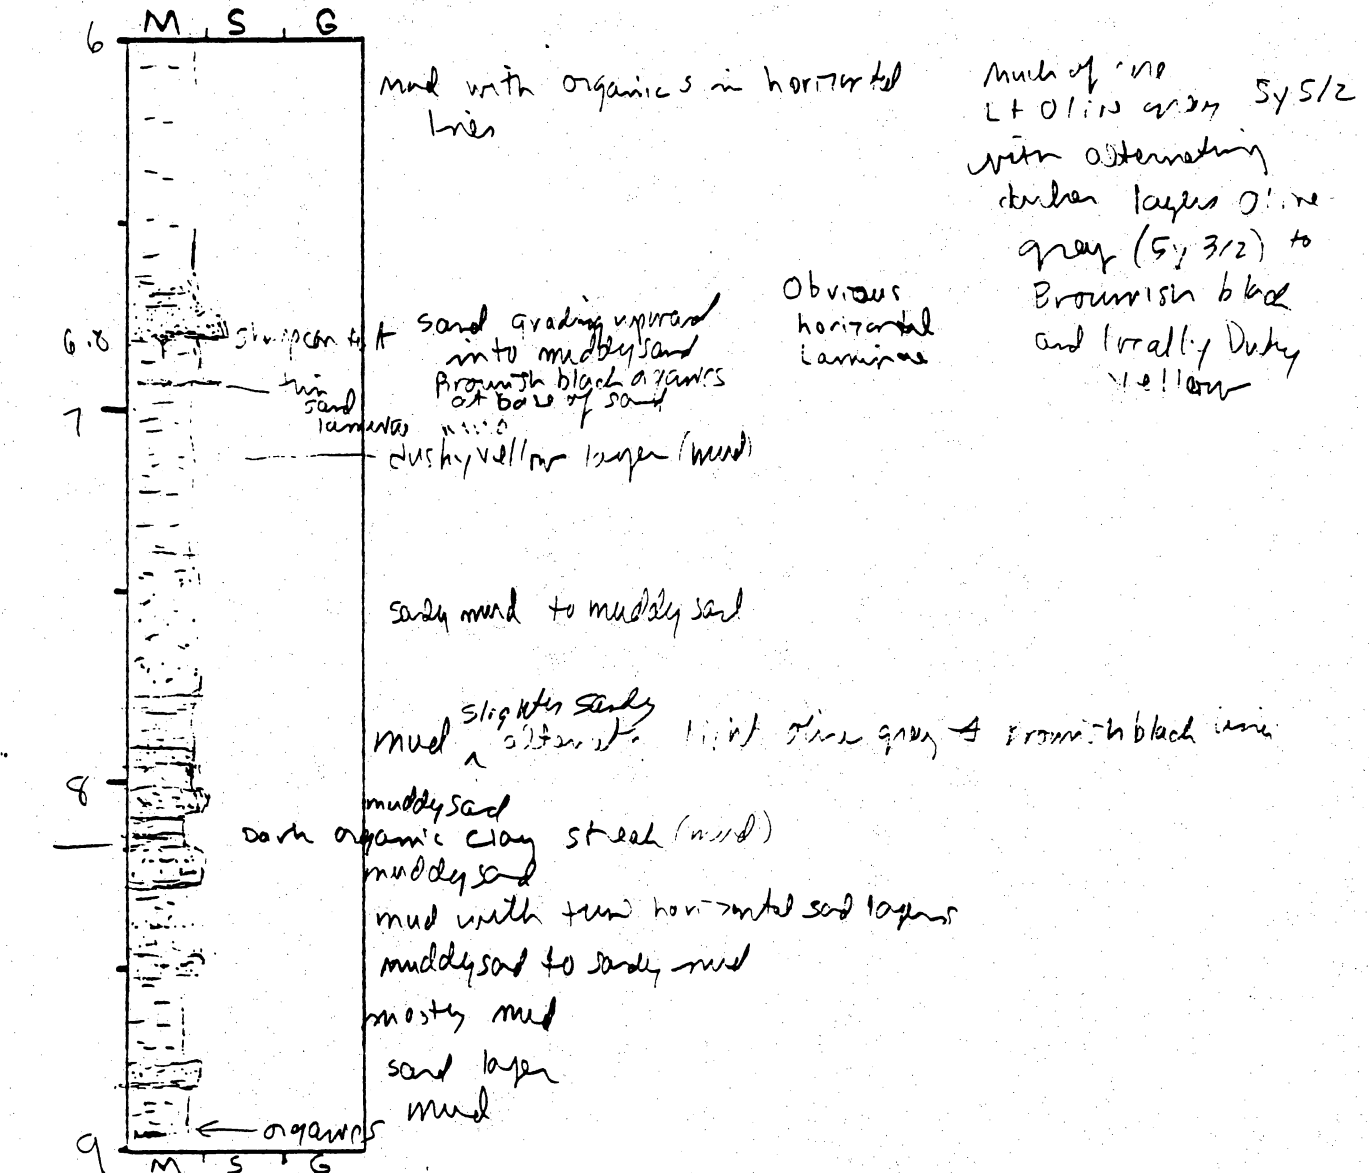 M S G
6
mud with organics in horizontal
lines
Much of
Lt Olive gray 5y 5/2
with alternating
darker layers Olive
gray (5y 3/2) to
Brownish black
and locally Dusky
Yellow
Obvious
horizontal
Laminae
6.8
sharp contact
sand grading upward
into muddy sand
Brownish black organics
at base of sand
thin
sand
laminae
7
dusky yellow layer (mud)
sandy mud to muddy sand
slightly sandy
mud ^ alternate light olive gray & brownish black
8
muddy sand
Dark organic clay streak (mud)
muddy sand
mud with thin horizontal sand layers
muddy sand to sandy mud
mostly mud
sand layer
mud
organics
9
M S G